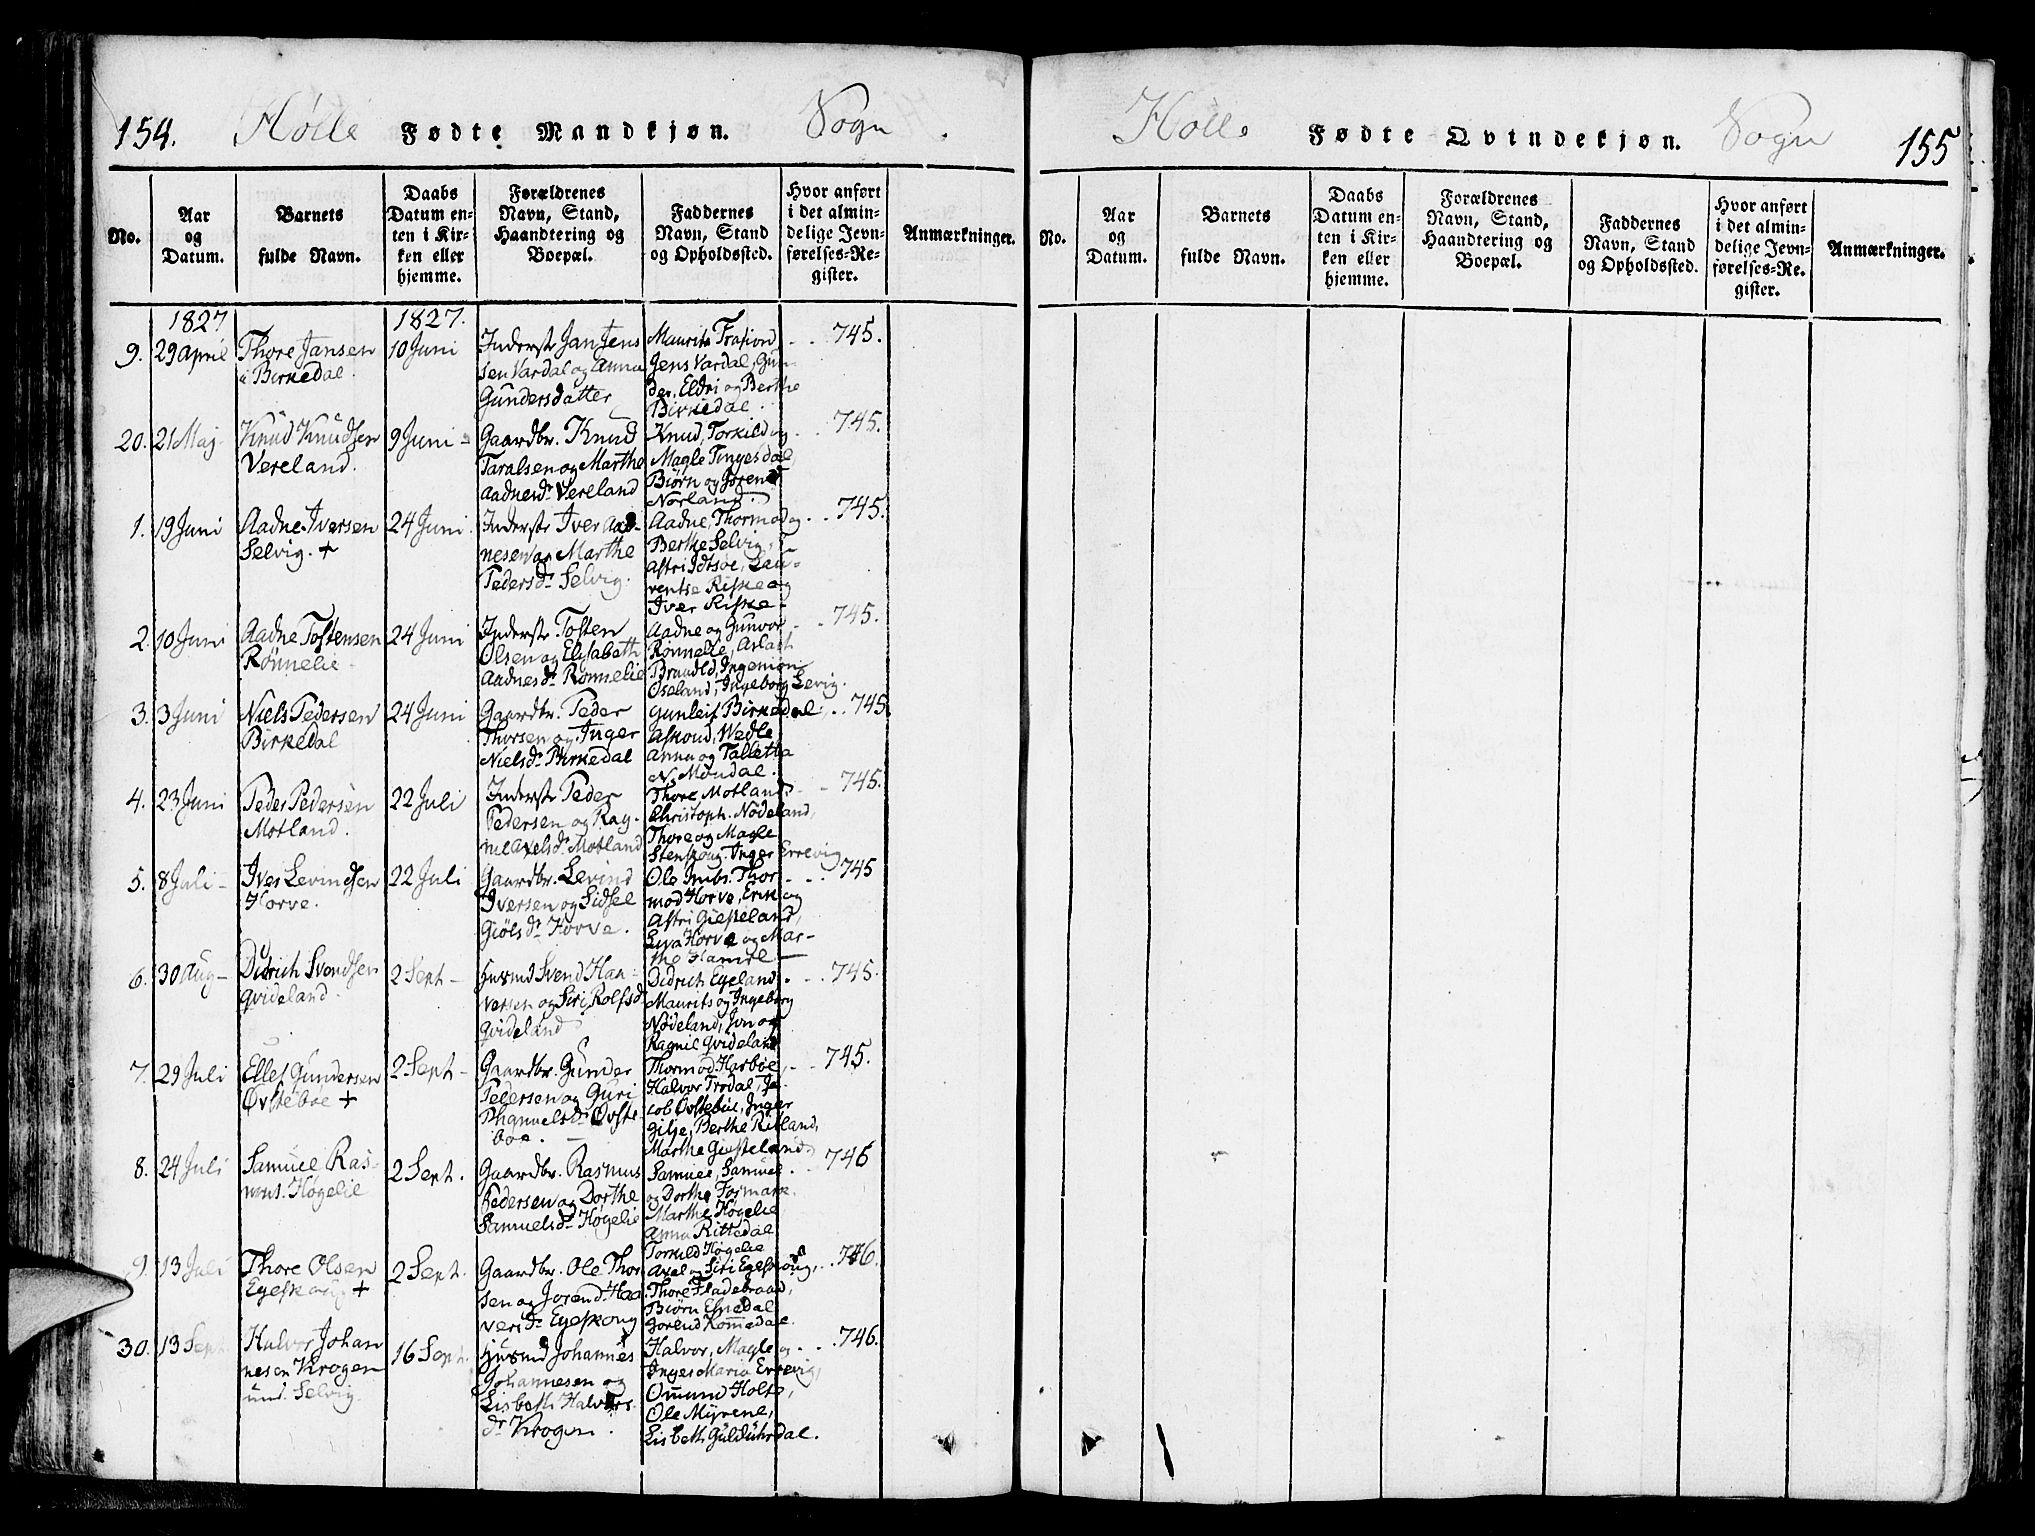 154. Hølle Fødte Mandkjøn. Sogn
No.
Aar
og
Datum.
Barnets
fulde Navn.
Daabs
Datum en-
ten i Kir-
ken eller
hjemme.
Forældrenes
Navn, Stand,
Haandtering og
Boepæl.
Faddernes
Navn, Stand
og Opholdssted.
Hvor anført
i det almin-
delige Jevn-
førelses-Re-
gister.
Anmærkninger.
1827
1827.
9.
29 April
Thore Jansen
i Birkedal.
10 Juni
Inderst Jan Jens
sen Vardal og Anna
Gundersdatter
Maurits
Jens Vardal, Gun-
der, Eldri og Berthe
Birkedal.
745.
20.
21 Maj
Knud Knudsen
Vereland.
9 Juni
Gaardbr. Knud
Taralsen og Marthe
Aadnesdr. Vereland
Knud, Torkild og
Magle Tingesdal
Biørn og Joren
Norland.
745.
1.
19 Juni
Aadne Iversen
Selvig. +
24 Juni
Inderst Iver Aad-
nesen og Marthe
Pedersdr. Selvig.
Aadne, Thormod og
Berthe Selvig,
Astri Idtsøe, Lau-
rentse Riske og
Iver Riske
745.
2.
10 Juni
Aadne Tostensen
Rønnelie
24 Juni
Inderst Tosten
Olsen og Elisabeth
Aadnesdr. Rønnelie
Aadne og Gunvor
Rønnelie, Aslach
Ingemion
Oseland, Ingeborg Levig.
745.
3.
3 Juni
Niels Pedersen
Birkedal
24 Juni
Gaardbr. Peder
Thorsen og Inger
Nielsdr. Birkedal
Gunleif Birkedal
Askoud, Wedle
Anna og Talletta
N. Møndal.
745.
4.
23 Juni
Peder Pedersen
Motland.
22 Juli
Inderst Peder
Pedersen og Rag-
nil Axelsdr. Motland
Thore, Motland,
Christoph. Nødeland,
Thore og Magle
Stenskoug, Inger Errevig
745.
5.
8 Juli
Iver Levindsen
Horve.
22 Juli
Gaardbr. Levind
Iversen og Sidsel
Giølsdr. Horve.
Ole Imbs. Thor-
mod Horve, Erik og
Astri Gieskeland,
Liva Horve og Mar-
the Hamre
745
6.
30 Aug
Didrich Svendsen
Qvideland.
2 Sept
Husmd Svend Haa-
versen og Siri Rolfsd.
Qvideland
Didrich Egeland.
Maurits og Ingeborg
Nødeland, Jon og
Ragnil Qvideland
745.
7.
29 Juli
Ellef Gundersen
Øvsteboe +
2 Sept
Gaardbr. Gunder
Pedersen og Guri
Phanuelsdr. Øvste-
boe.
Thormod Harboe,
Halvor Trodal, Ja-
cob Øvsteboe, Inger
Gilje, Berthe Ritland,
Marthe Giesteland.
745.
8.
24 Juli
Samuel Ras-
mus. Høgelie
2 Sept.
Gaardbr. Rasmus
Pedersen og Dorthe
Samuelsdr. Høgelie
Samuel, Samuel
og Dorthe Fosmark
Marthe Høgelie
Anna Rittedal
Torkild Høgelie
746
9.
13 Juli
Thore Olsen
Egeskoug +
2 Sept.
Gaardbr. Ole Thor
sen og Jorend. Haa
versdr. Egeskoug
Axel og Siri Egeskoug,
Thore Fladebraad,
Biørn Espedal
Jorend Rommedal.
746.
30.
13 Sept.
Halvor Johan
nesen Krogen
und. Selvig.
16 Sept.
Husmd Johannes
Johannesen og
Lisbeth Halvors
dr. Krogen.
Halvor, Magle og
Inger Maria Errevig,
Omund Holte,
Ole Myrene,
Lisbeth Guldührdal.
746.
Hølle Fødte Qvindekjøn. Sogn 155
No.
Aar
og
Datum.
Barnets
fulde Navn.
Daabs
Datum en-
ten i Kir-
ken eller
hjemme.
Forældrenes
Navn, Stand,
Haandtering og
Boepæl.
Faddernes
Navn, Stand
og Opholdssted.
Hvor anført
i det almin-
delige Jevn-
førelses-Re-
gister.
Anmærkninger.